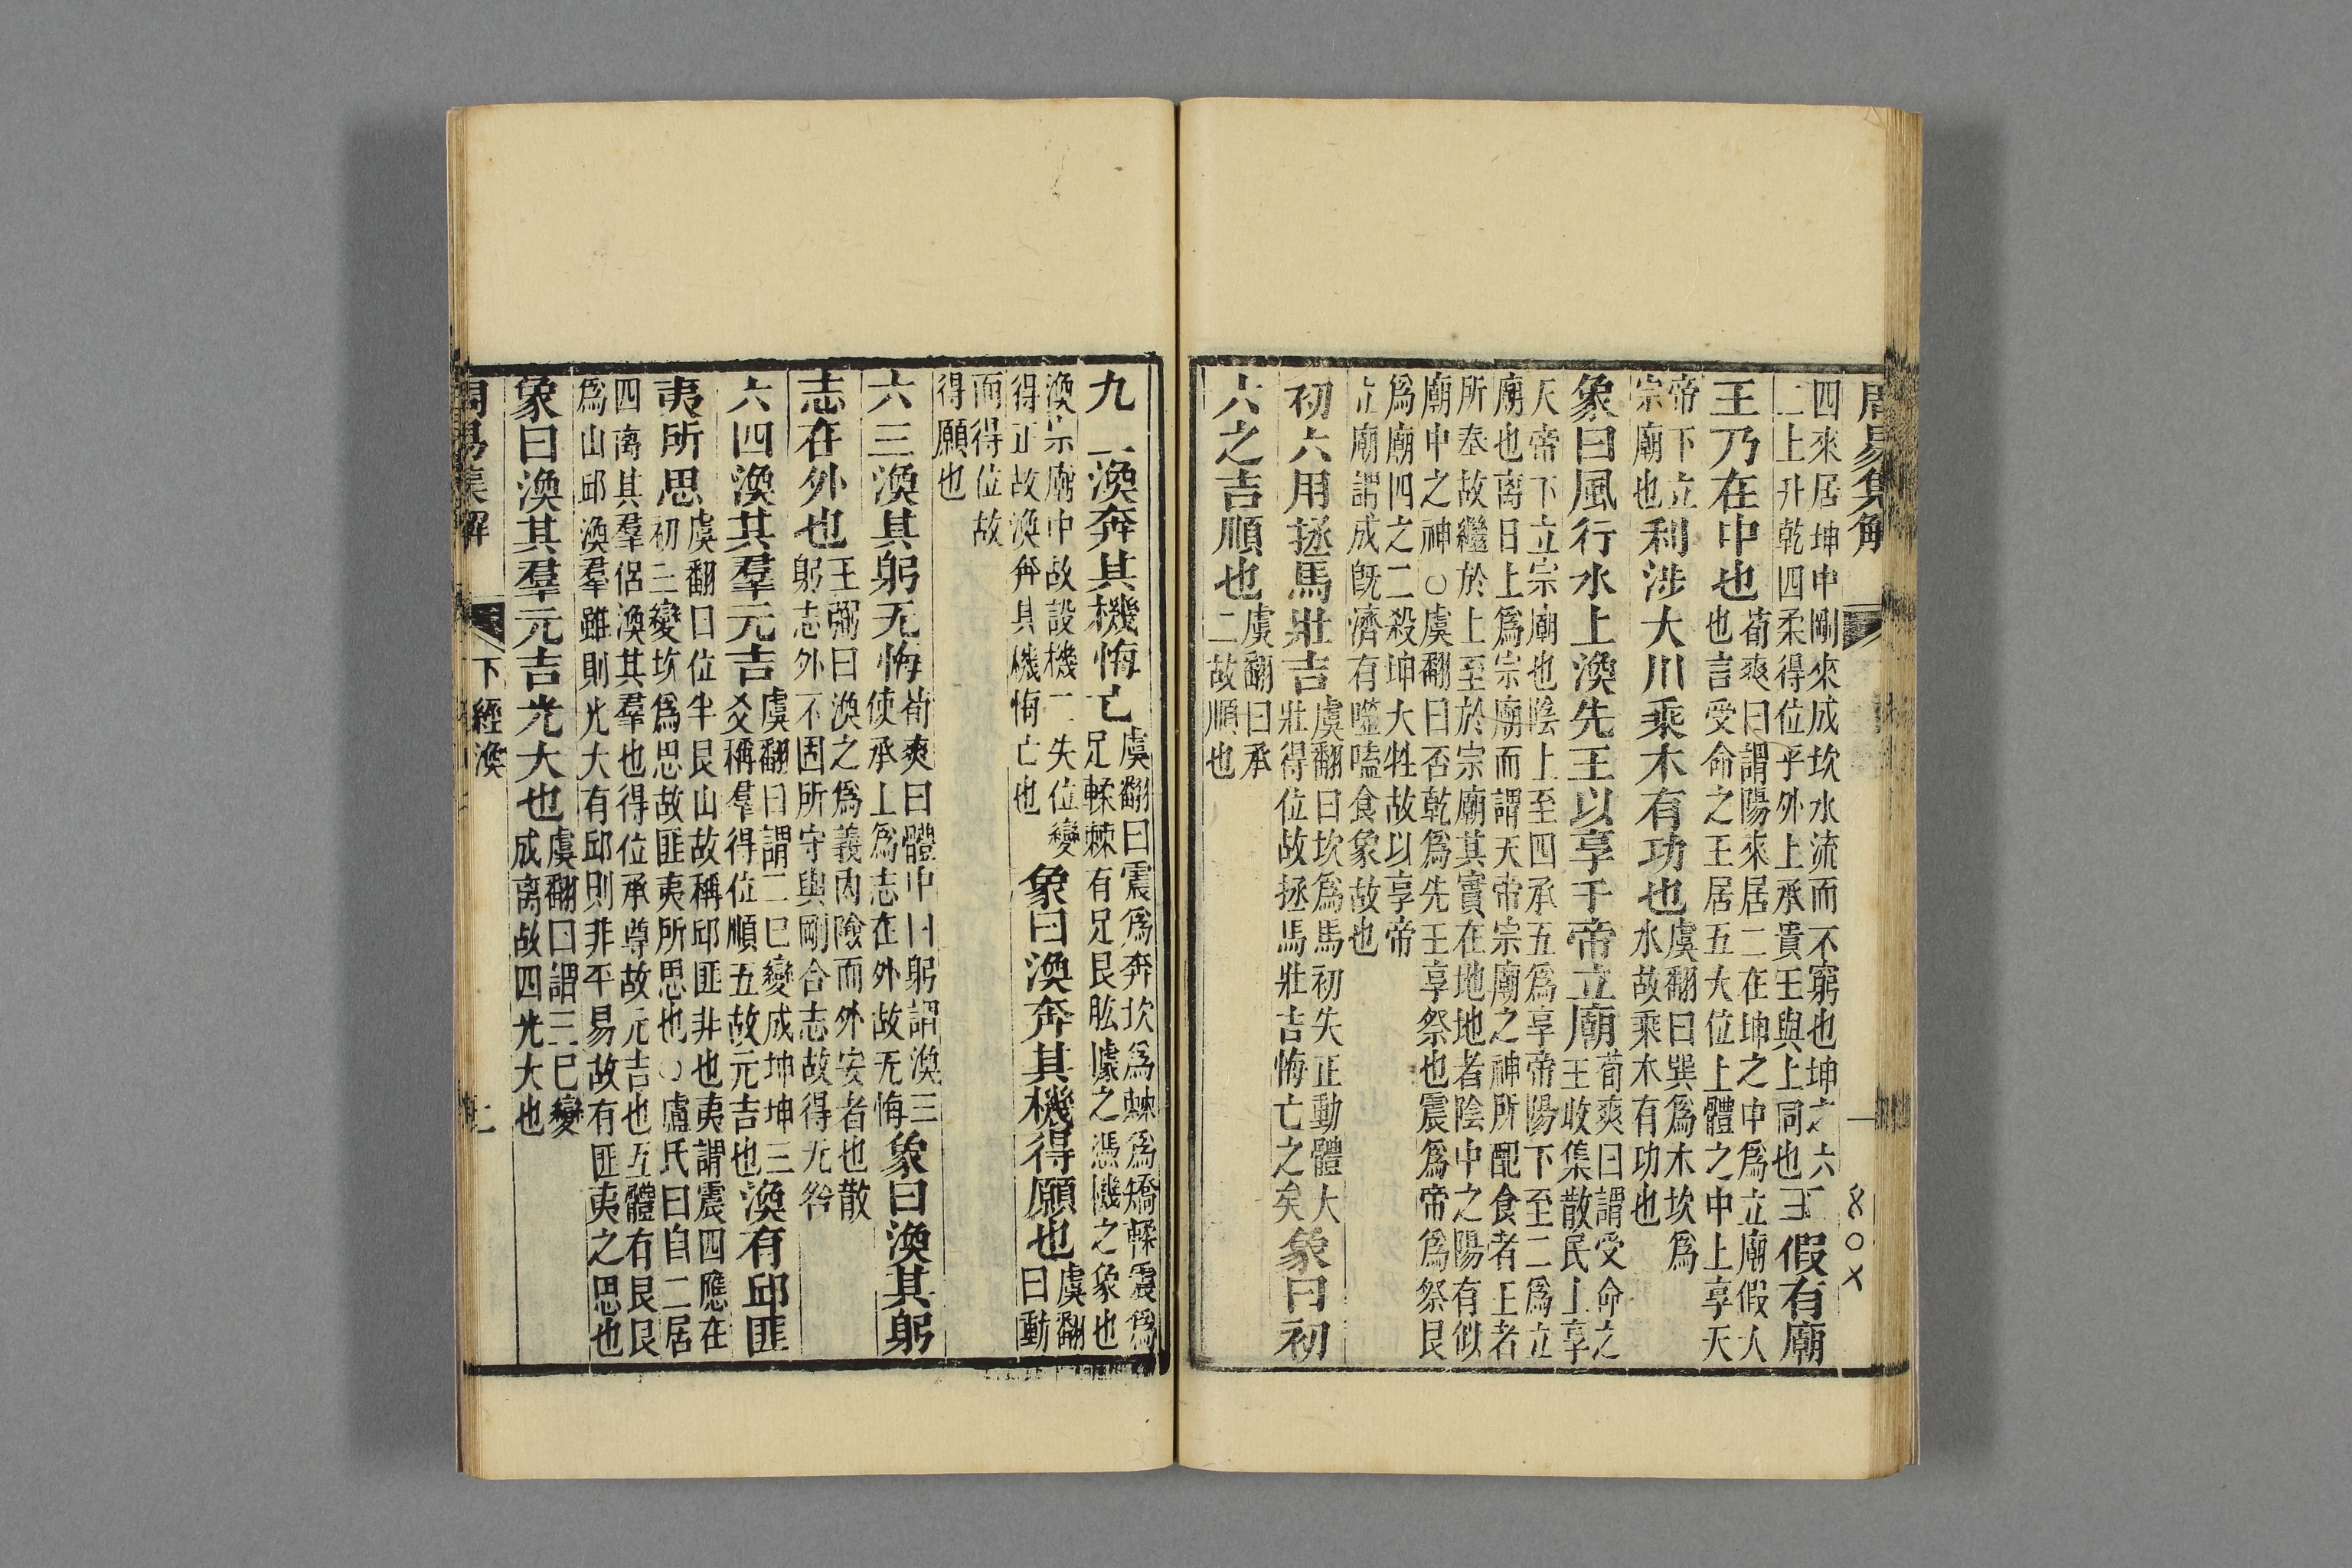 周易集解
四來居坤中剛來成坎水流而不窮也坤之六二上升乾四柔得位乎外上承貴王與上同也王假有廟
王乃在中也荀爽曰謂陽來居二在坤之中爲立廟假人也言受命之王居五大位上體之中上享天
帝下立宗廟也利涉大川乘木有功也虞翻曰巽爲木坎爲水故乘木有功也
象曰風行水上渙先王以享于帝立廟荀爽曰謂受命之王收集散民上享
天帝下立宗廟也陰上至四承五爲享帝陽下至二爲立廟也离日上爲宗廟而謂天帝宗廟之神所配食者王者
所奉故繼於上至於宗廟其實在地地者陰中之陽有似廟中之神○虞翻曰否乾爲先王享祭也震爲帝爲祭艮
爲廟四之二殺坤大牲故以享帝立廟謂成旣濟有噬嗑食象故也
初六用拯馬壯吉虞翻曰坎爲馬初失正動體大壯得位故拯馬壯吉悔亡之矣象曰初
六之吉順也虞翻曰承二故順也
九二渙奔其機悔亡虞翻曰震爲奔坎爲棘爲矯輮震爲足輮棘有足艮肱據之憑機之象也
渙宗廟中故設機二失位變得正故渙奔其機悔亡也象曰渙奔其機得願也虞翻曰動
而得位故得願也
六三渙其躬无悔荀爽曰體中曰躬謂渙三使承上爲志在外故无悔象曰渙其躬
志在外也王弼曰渙之爲義內險而外安者也散躬志外不固所守與剛合志故得无咎
六四渙其羣元吉虞翻曰謂二已變成坤坤三爻稱羣得位順五故元吉也渙有邱匪
夷所思虞翻曰位半艮山故稱邱匪非也夷謂震四應在初三變坎爲思故匪夷所思也○盧氏曰自二居
四离其羣侶渙其羣也得位承尊故元吉也互體有艮艮爲山邱渙羣雖則光大有邱則非平易故有匪夷之思也
象曰渙其羣元吉光大也虞翻曰謂三巳變成离故四光大也
周易集解 下經渙